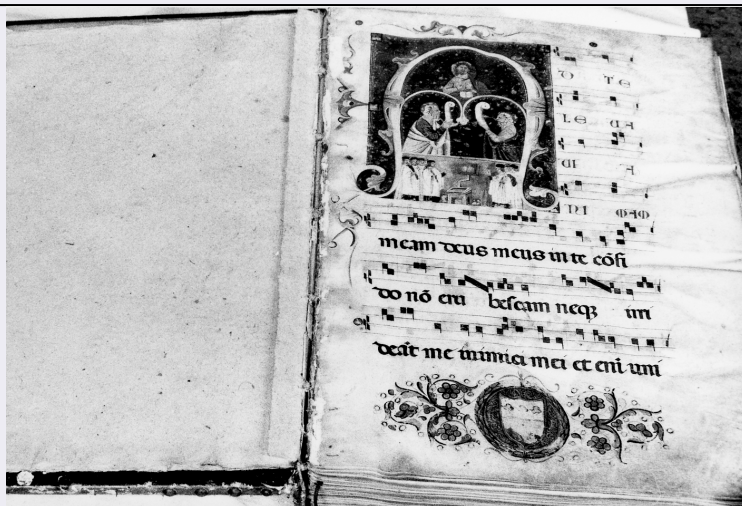 D TE
LE UA
UI A
ANI MAM
meam deus meus in te cõfi
do nõ eru bescam neqꝫ irri
deãt me inimici mei et enĩ uni